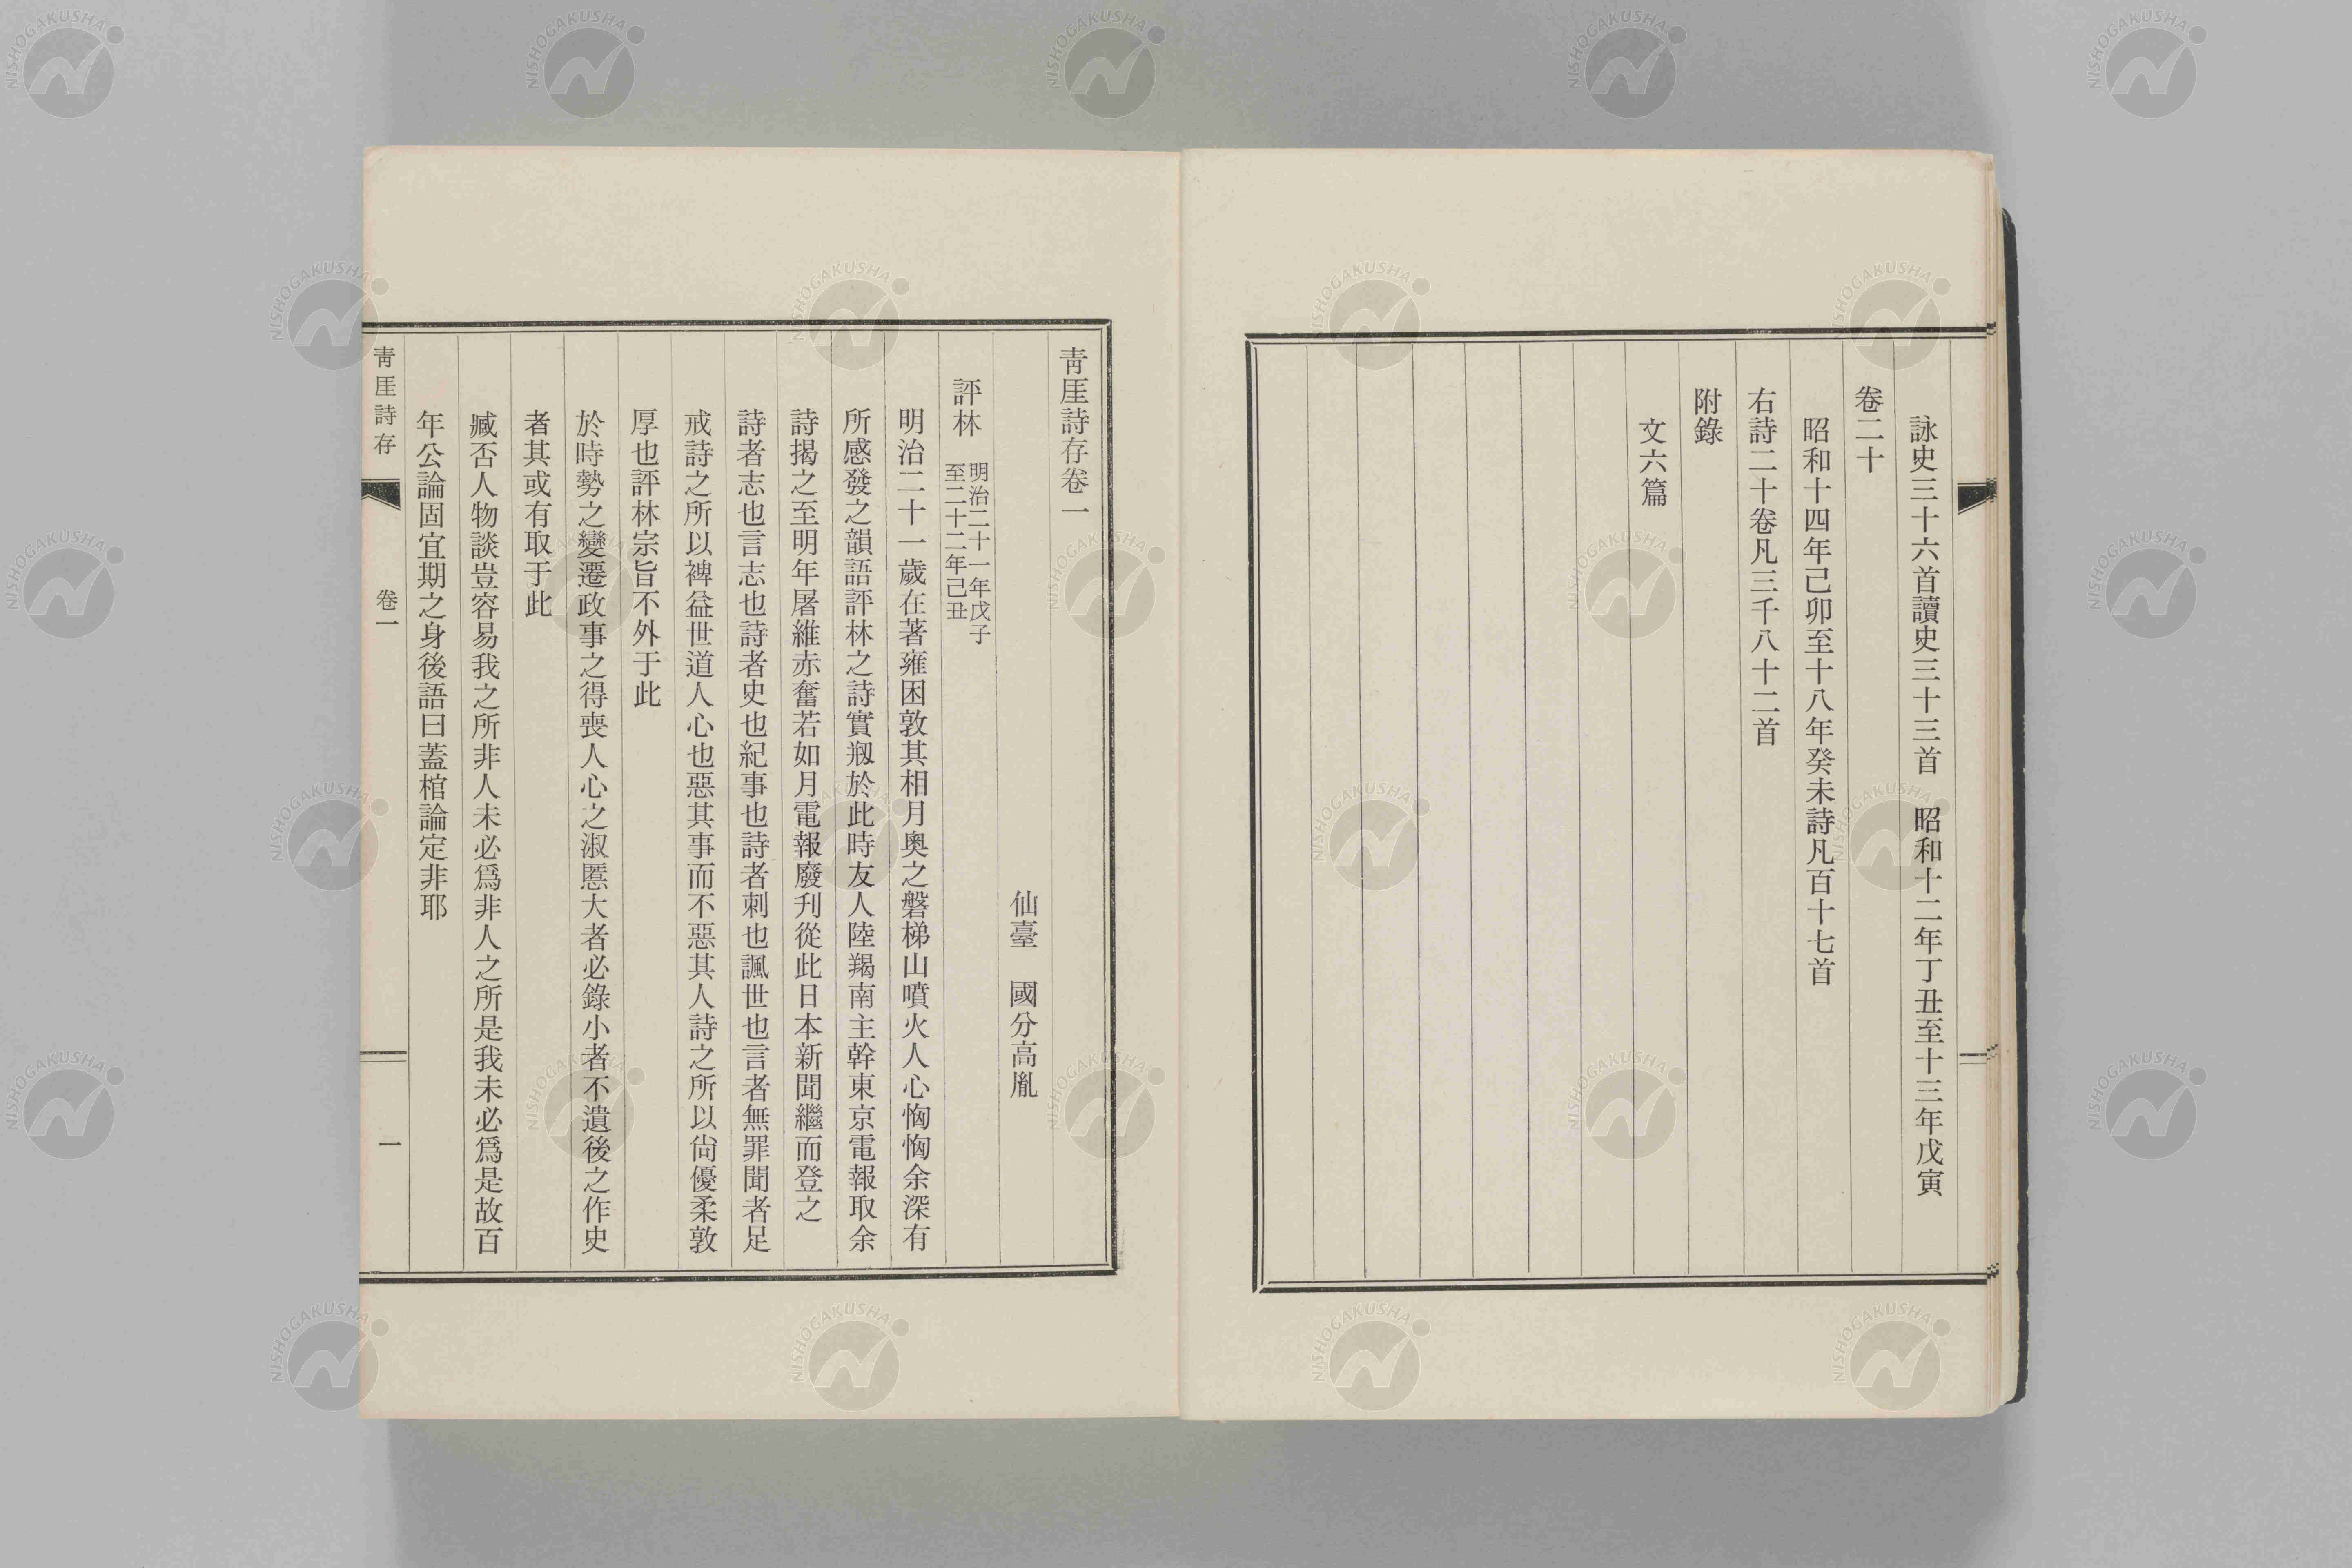 詠史三十六首讀史三十三首　昭和十二年丁丑至十三年戊寅
卷二十
昭和十四年己卯至十八年癸未詩凡百十七首
右詩二十卷凡三千八十二首
附錄
文六篇
靑厓詩存卷一
仙臺　國分高胤
評林　明治二十一年戊子
至二十二年己丑
明治二十一歲在著雍困敦其相月奧之磐梯山噴火人心恟恟余深有
所感發之韻語評林之詩實剏於此時友人陸羯南主幹東京電報取余
詩揭之至明年屠維赤奮若如月電報廢刋從此日本新聞繼而登之
詩者志也言志也詩者史也紀事也詩者刺也諷世也言者無罪聞者足
戒詩之所以裨益世道人心也惡其事而不惡其人詩之所以尙優柔敦
厚也評林宗旨不外于此
於時勢之變遷政事之得喪人心之淑慝大者必錄小者不遺後之作史
者其或有取于此
臧否人物談豈容易我之所非人未必爲非人之所是我未必爲是故百
年公論固宜期之身後語曰蓋棺論定非耶
靑厓詩存
卷一
一
NISHOGAKUSHA